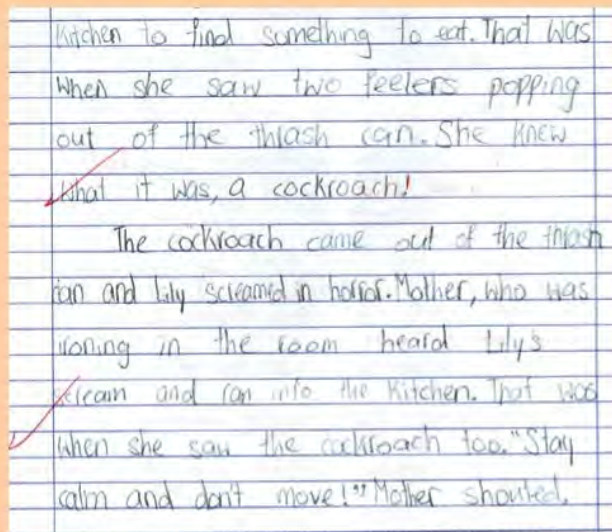 Kitchen to find something to eat. That was
when she saw two feelers popping
out of the thrash can. She knew
what it was, a cockroach!
The cockroach came out of the thrash
can and Lily screamed in horror. Mother, who was
ironing in the room heard Lily's
scream and ran into the kitchen. That was
when she saw the cockroach too. "Stay
calm and don't move!" Mother shouted.